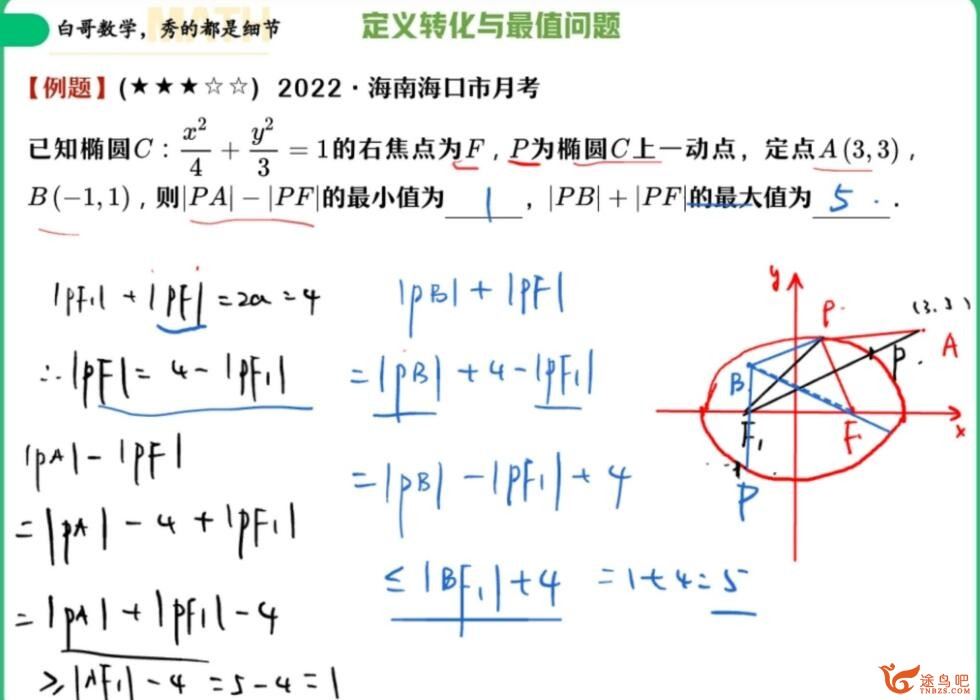 白哥数学，秀的都是细节
定义转化与最值问题
【例题】(★★★☆☆) 2022·海南海口市月考
已知椭圆C：x²/4 + y²/3 = 1的右焦点为F，P为椭圆C上一动点，定点A(3,3)，
B(-1,1)，则|PA|-|PF|的最小值为 1 ，|PB|+|PF|的最大值为 5 .
|PF₁| + |PF| = 2a = 4
∴ |PF| = 4 - |PF₁|
|PA| - |PF|
= |PA| - 4 + |PF₁|
= |PA| + |PF₁| - 4
≥ |AF₁| - 4 = 5 - 4 = 1
|PB| + |PF|
= |PB| + 4 - |PF₁|
= |PB| - |PF₁| + 4
≤ |BF₁| + 4 = 1 + 4 = 5
y
P
(3.3)
A
P
B
F₁
F
x
P
途鸟吧
www.TNBZS.COM